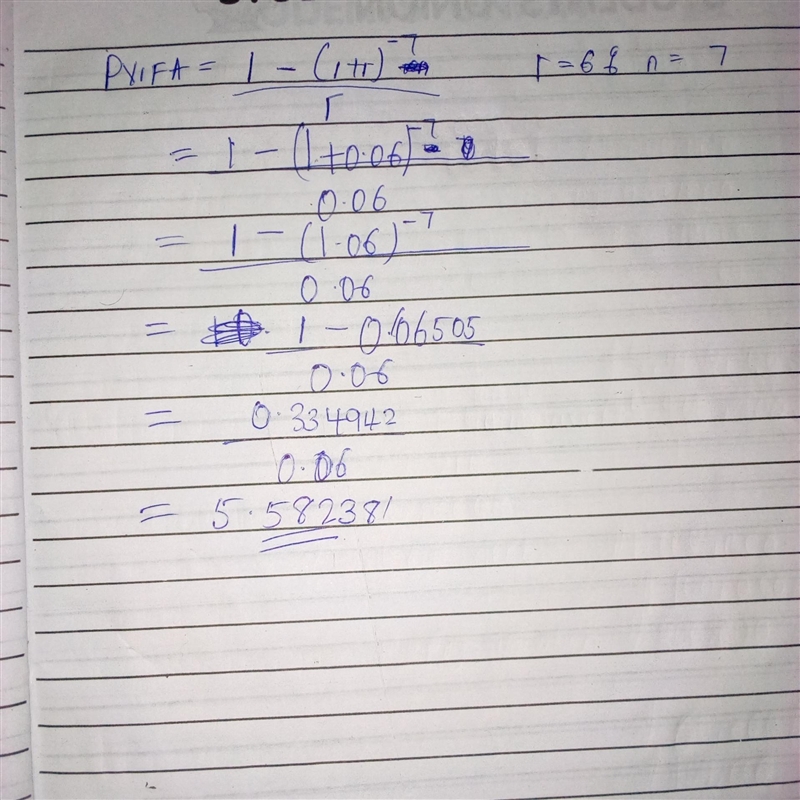 PVIFA = 1 - (1+r)^-7 / r    r = 6 & n = 7
= 1 - (1+0.06)^-7 / 0.06
= 1 - (1.06)^-7 / 0.06
= 1 - 0.06505 / 0.06
= 0.334942 / 0.06
= 5.582381